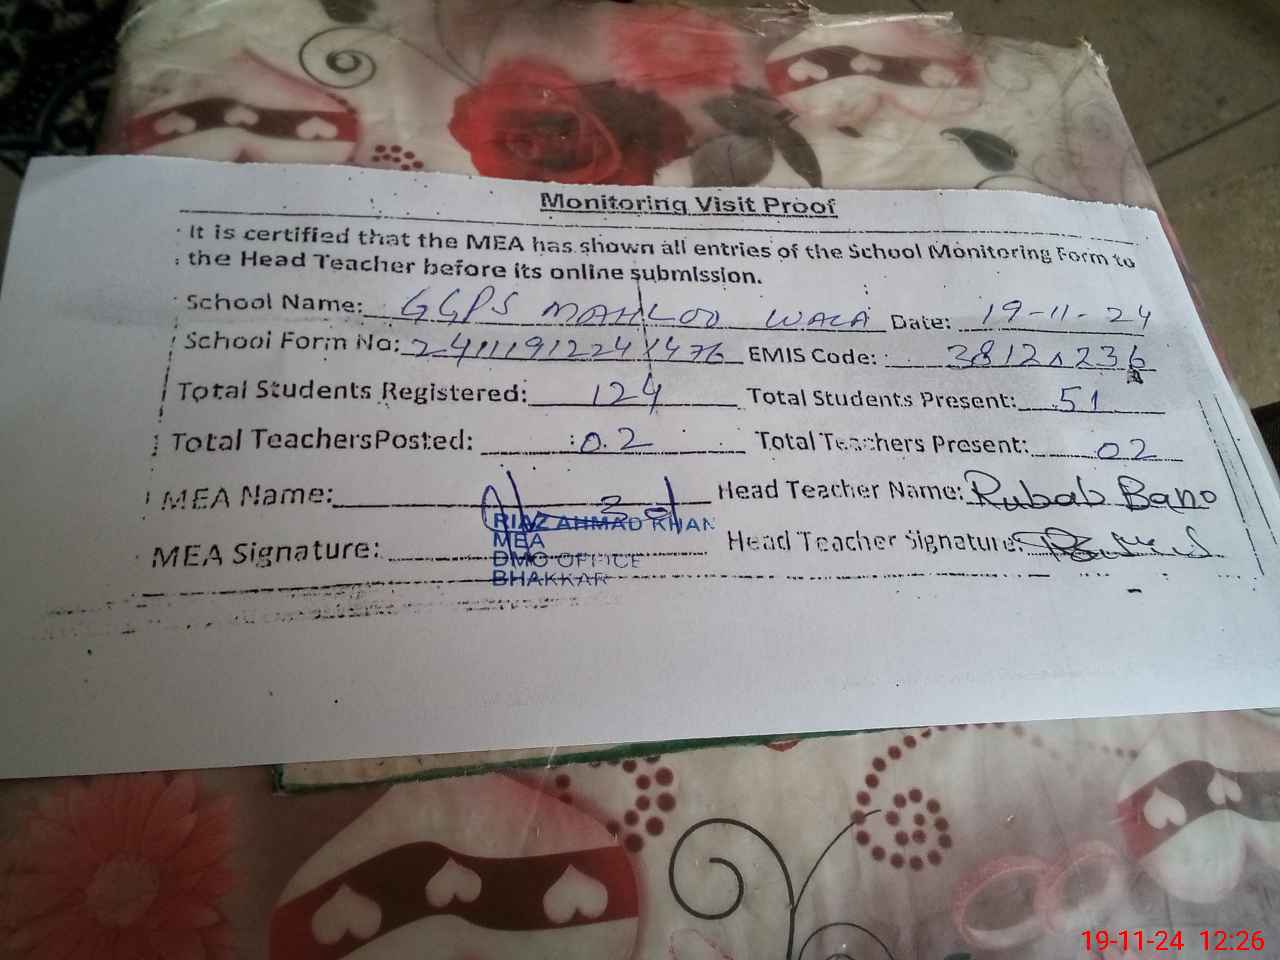 Monitoring Visit Proof
It is certified that the MEA has shown all entries of the School Monitoring Form to
the Head Teacher before its online submission.
School Name: GGPS MAHLOO WALA Date: 19-11-24
School Form No: EMIS Code:
Total Students Registered: 124 Total Students Present: 51
Total TeachersPosted: 02 Total Teachers Present: 02
MEA Name: Head Teacher Name: Rubab Bano
RIAZ AHMAD KHAN
MEA
MEA Signature: Head Teacher Signature:
DMO OFFICE
BHAKKAR
19-11-24 12:26